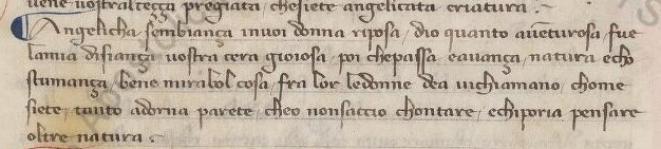 uene uostraltecça pregiata / chesiete angelicata criatura .
Angelicha sembiança inuoi donna riposa / dio quanto auenturosa fue
lamia disiança uostra cera gioiosa / poi chepassa eauança / natura echo
stumança / bene mirabol cosa / fra lor ledonne dea uichiamano / chome
siete / tanto adorna parete / cheo nonsaccio chontare / echiporia pensare
oltre natura .